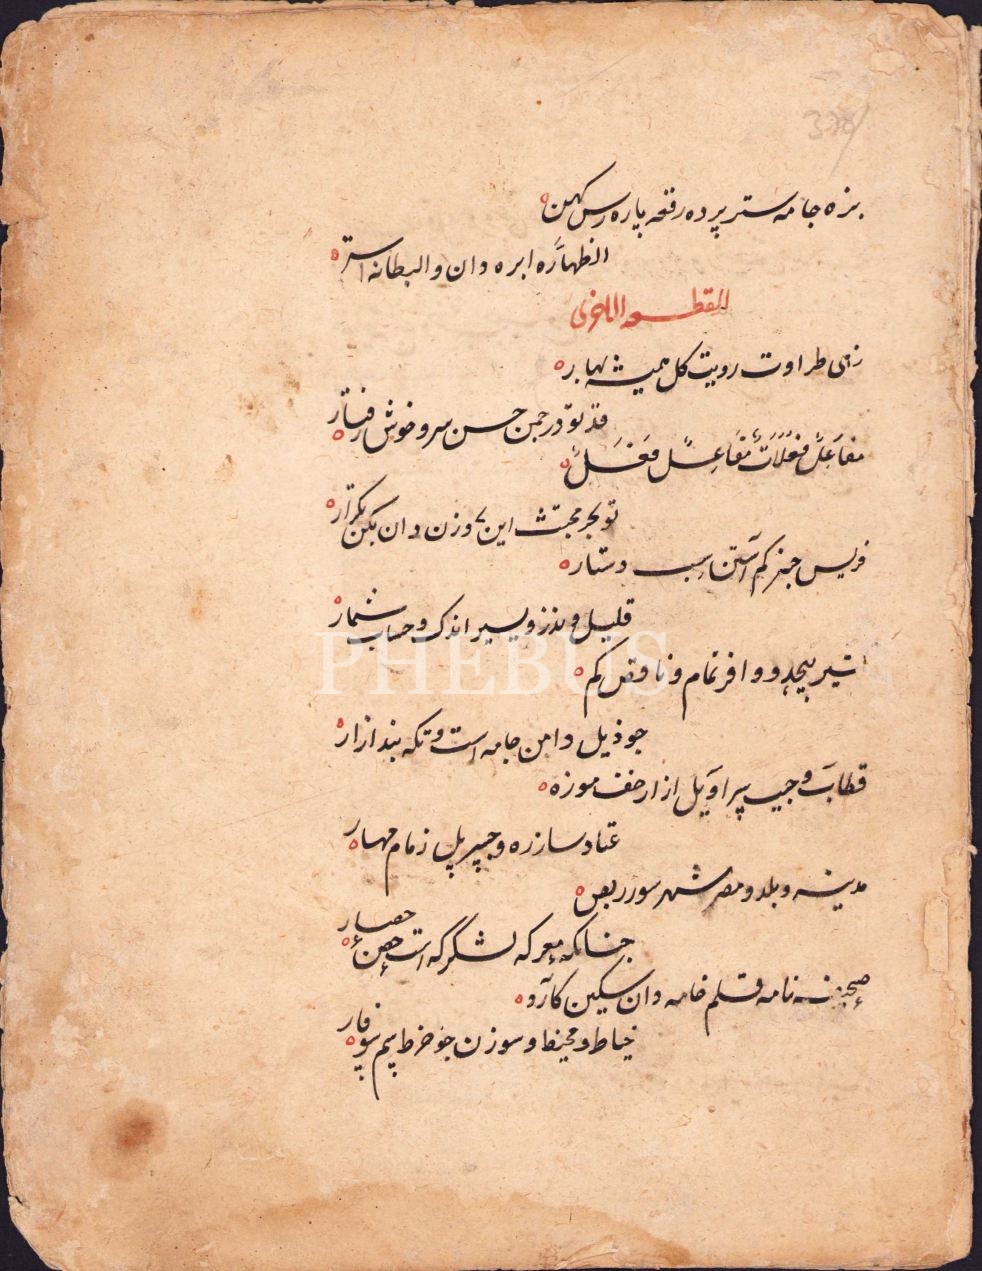 378
بزه جامه ستر پرده رقعه پاره رس کهن
الظهاره ابره دان و البطانه استر
القطعه الاخری
زهی طراوت رویت کل همیشه بهار
قد تو در جمن حسن سرو خوش رفتار
مفاعلن فعلاتن مفاعلن فعلن
تو بحر مجتث این وزن دان بکن تکرار
کم آستن سب دستار
قلیل و نذر و یسیر اندک و حساب شمار
و وافر تمام و ناقص کم
جو ذیل دامن جامه است و تکه بند ازار
قطاب و جیب سراویل ازار خف موزه
عتاد ساز زره و جسر پل زمام مهار
مدینه و بلد و مصر شهر سور ربض
جنانکه معرکه لشکرکه است حصن حصار
صحیفه نامه قلم خامه دان سکین کارد
خیاط و مخیط و سوزن جو خرط سم سوفار
PHEBUS